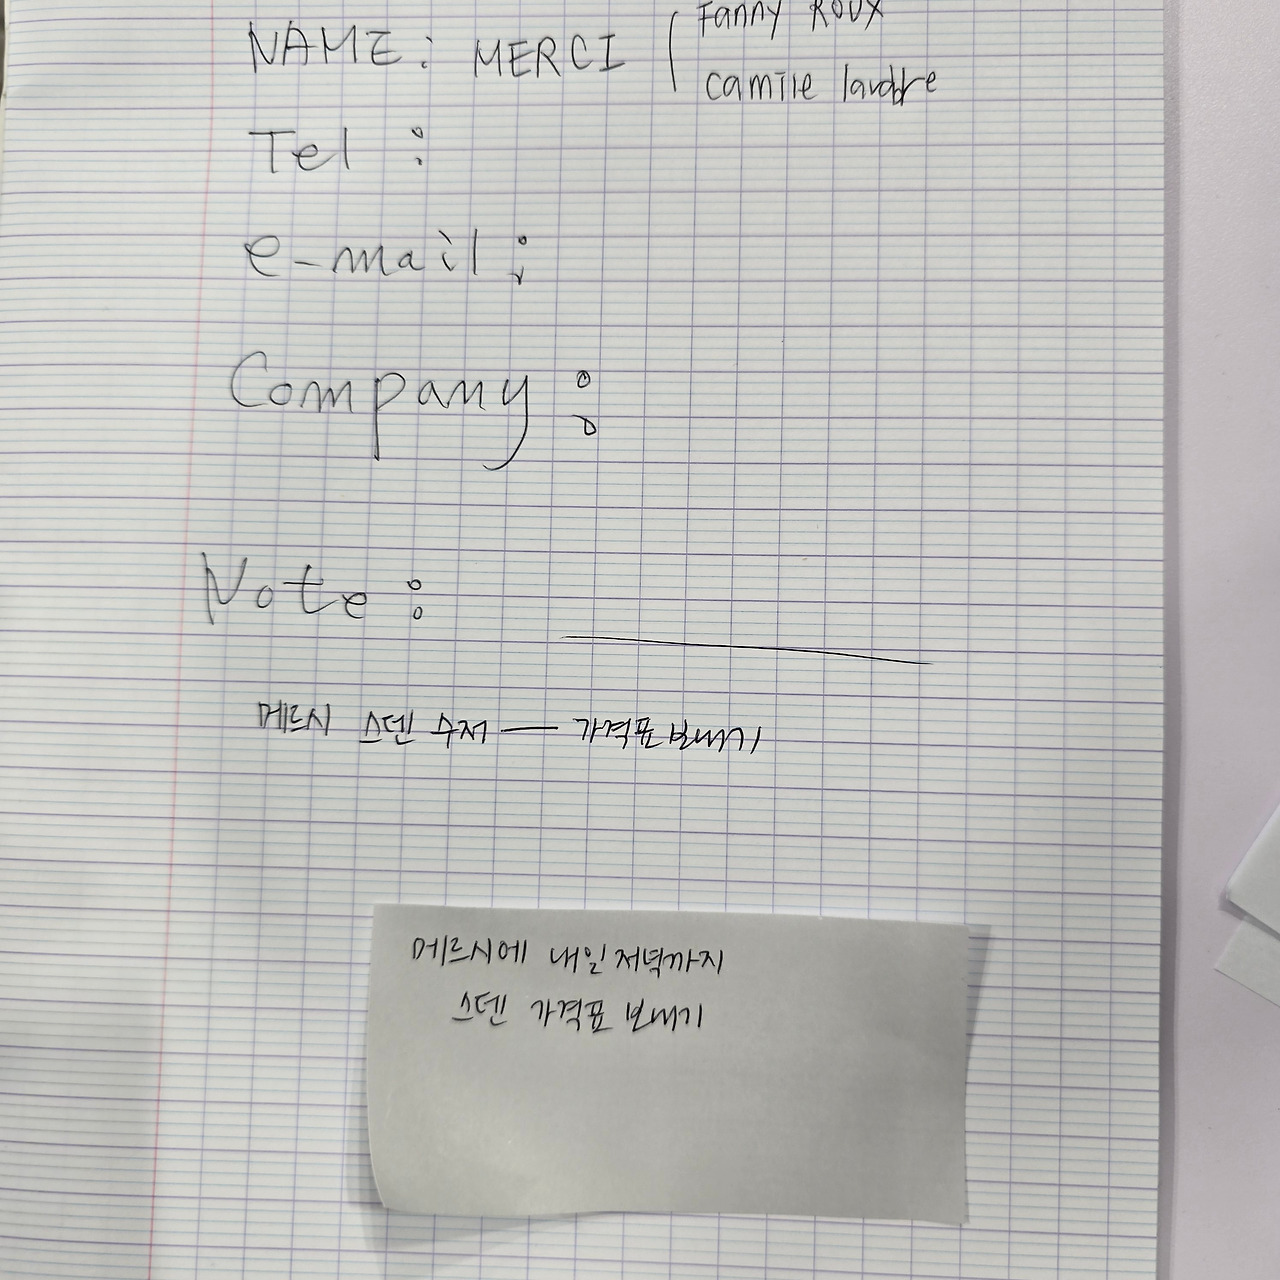 NAME : MERCI ( Fanny Roux
camille
Tel :
e-mail :
Company :
Note :
메르시 스덴 수저 — 가격표 보내기
메르시에 내일 저녁까지
스덴 가격표 보내기